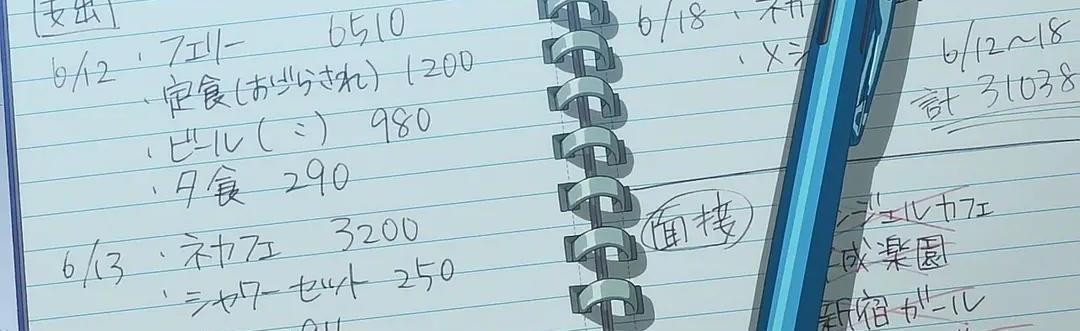 [支出]
6/12 ・フェリー 6510
・定食(おごらされ) 1200
・ビール(〃) 980
・夕食 290
6/13 ・ネカフェ 3200
・シャワーセット 250
6/18 ・ネカ
・メシ
6/12〜18
計 31038
面接
ンジェルカフェ
成楽園
新宿ガール